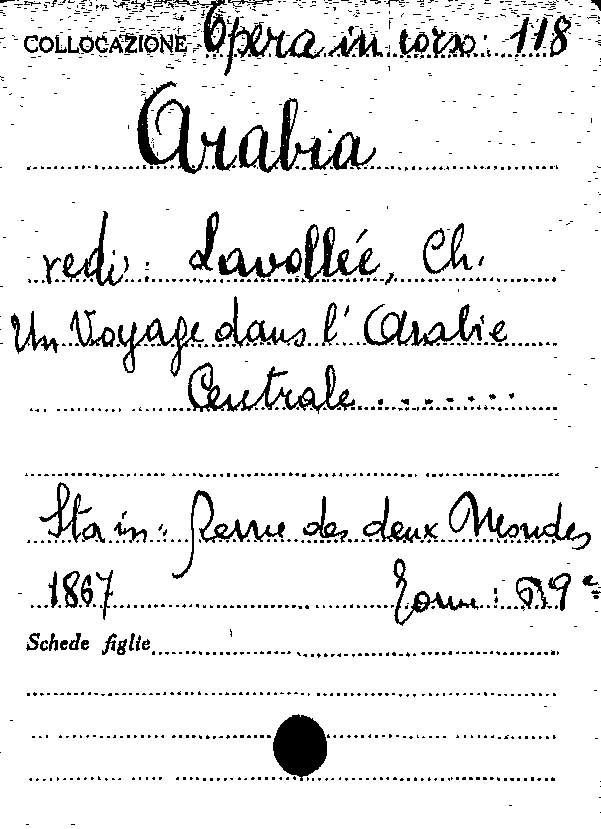 COLLOCAZIONE Opera in corso: 118
Arabia
vedi: Lavollée, Ch.
Un Voyage dans l'Arabie
Centrale .......
Sta in: Revue des deux Mondes
1867 Tome: 69e
Schede figlie